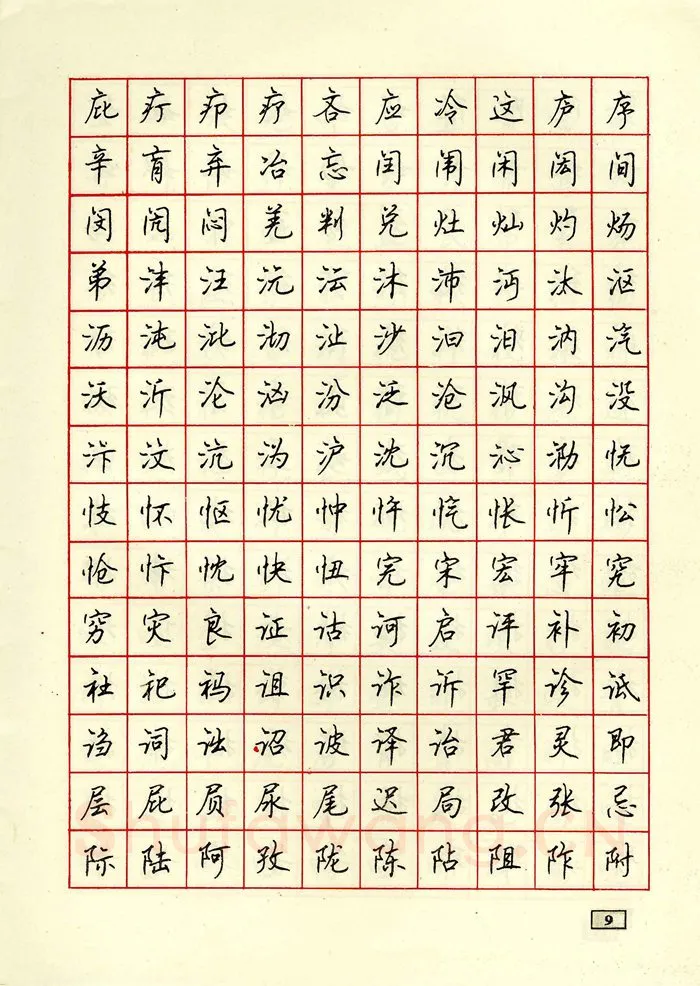 庇 疔 疖 疗 吝 应 冷 这 庐 序
辛 肓 弃 冶 忘 闰 闱 闲 闳 间
闵 闶 闷 羌 判 兑 灶 灿 灼 炀
弟 沣 汪 沅 沄 沐 沛 沔 汰 沤
沥 沌 沘 沏 沚 沙 汩 汨 汭 汽
沃 沂 沦 汹 汾 泛 沧 沨 沟 没
汴 汶 沆 沩 沪 沈 沉 沁 泐 怃
忮 怀 怄 忧 忡 忤 忾 怅 忻 忪
怆 忭 忱 快 忸 完 宋 宏 牢 究
穷 灾 良 证 诂 诃 启 评 补 初
社 祀 祃 诅 识 诈 诉 罕 诊 诋
诌 词 诎 诏 诐 译 诒 君 灵 即
层 屁 屃 尿 尾 迟 局 改 张 忌
际 陆 阿 孜 陇 陈 阽 阻 阼 附
9
Shufawang.CN